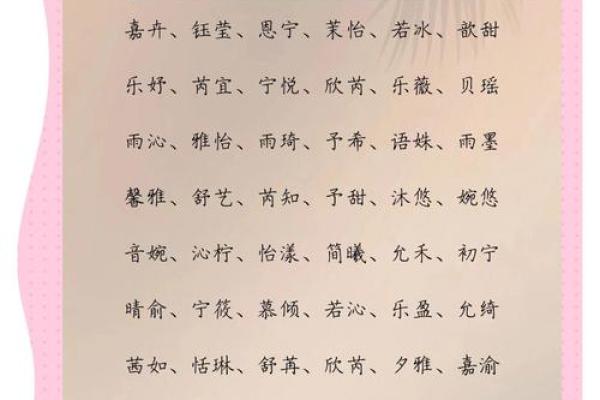 嘉卉、钰莹、恩宁、茉怡、若冰、歆甜
乐妤、芮宜、宁悦、欣芮、乐薇、贝瑶
雨沁、雅怡、雨琦、予希、语姝、雨墨
馨雅、舒艺、芮知、予甜、沐悠、婉悠
音婉、沁柠、怡漾、简曦、允禾、初宁
晴俞、宁筱、慕倾、若沁、乐盈、允绮
茜如、恬琳、舒苒、欣芮、夕雅、嘉渝